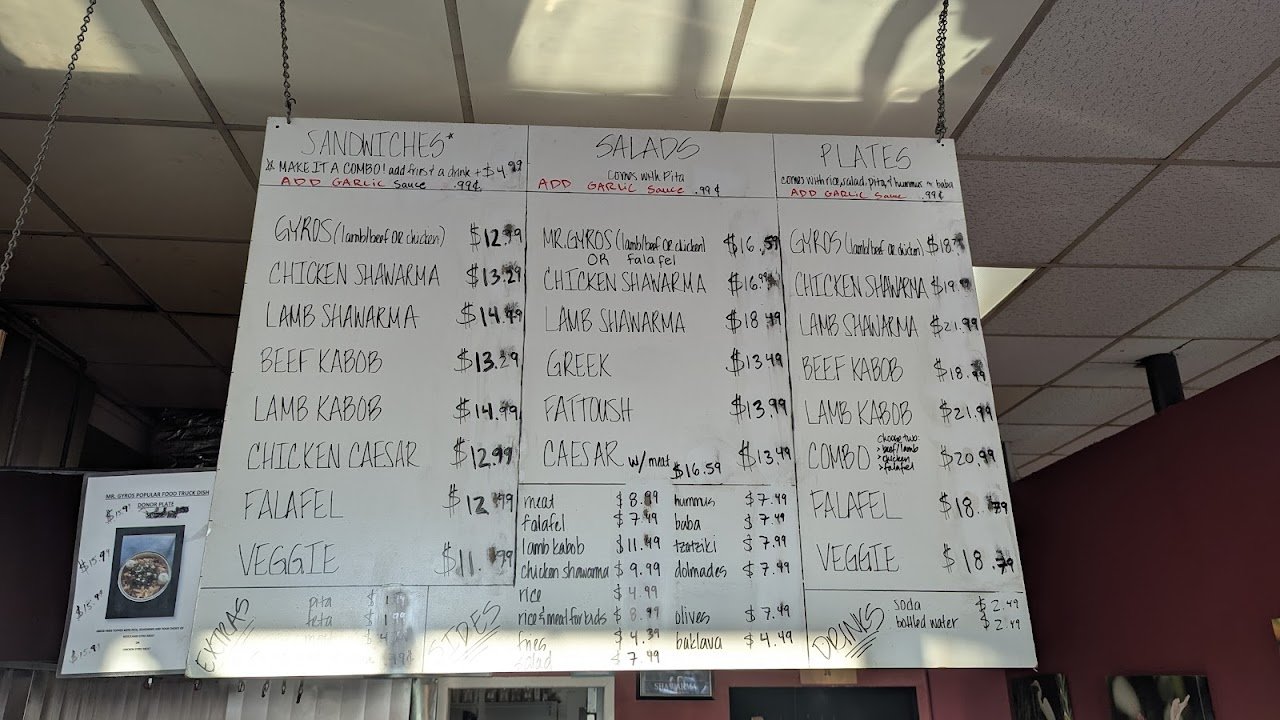 SANDWICHES*
* MAKE IT A COMBO! add fries & a drink + $4.99
ADD GARLIC Sauce .99¢
GYROS (lamb/beef OR chicken) $12.99
CHICKEN SHAWARMA $13.29
LAMB SHAWARMA $14.99
BEEF KABOB $13.29
LAMB KABOB $14.99
CHICKEN CAESAR $12.99
FALAFEL $12.99
VEGGIE $11.99
EXTRAS
pita
feta
SALADS
comes with Pita
ADD GARLIC Sauce .99¢
MR. GYROS (lamb/beef OR chicken) $16.59
OR falafel
CHICKEN SHAWARMA $16.99
LAMB SHAWARMA $18.49
GREEK $13.49
FATTOUSH $13.99
CAESAR $13.49
w/ meat $16.59
SIDES
meat $8.99
falafel $7.49
lamb kabob $11.49
chicken shawarma $9.99
rice $4.99
rice & meat for kids $8.99
fries $4.39
salad $7.49
hummus $7.49
baba $7.49
tzatziki $7.99
dolmades $7.49
olives $7.49
baklava $4.49
PLATES
comes with rice, salad, pita, & hummus or baba
ADD GARLIC Sauce .99¢
GYROS (lamb/beef OR chicken) $18.
CHICKEN SHAWARMA $19.
LAMB SHAWARMA $21.99
BEEF KABOB $18.99
LAMB KABOB $21.99
COMBO $20.99
choose two:
> beef/lamb
> chicken
> falafel
FALAFEL $18.79
VEGGIE $18.79
DRINKS
soda $2.49
bottled water $2.49
MR. GYROS POPULAR FOOD TRUCK DISH
DONOR PLATE
$15.9
$15.9
$15.9
$15.9
SHAWARMA